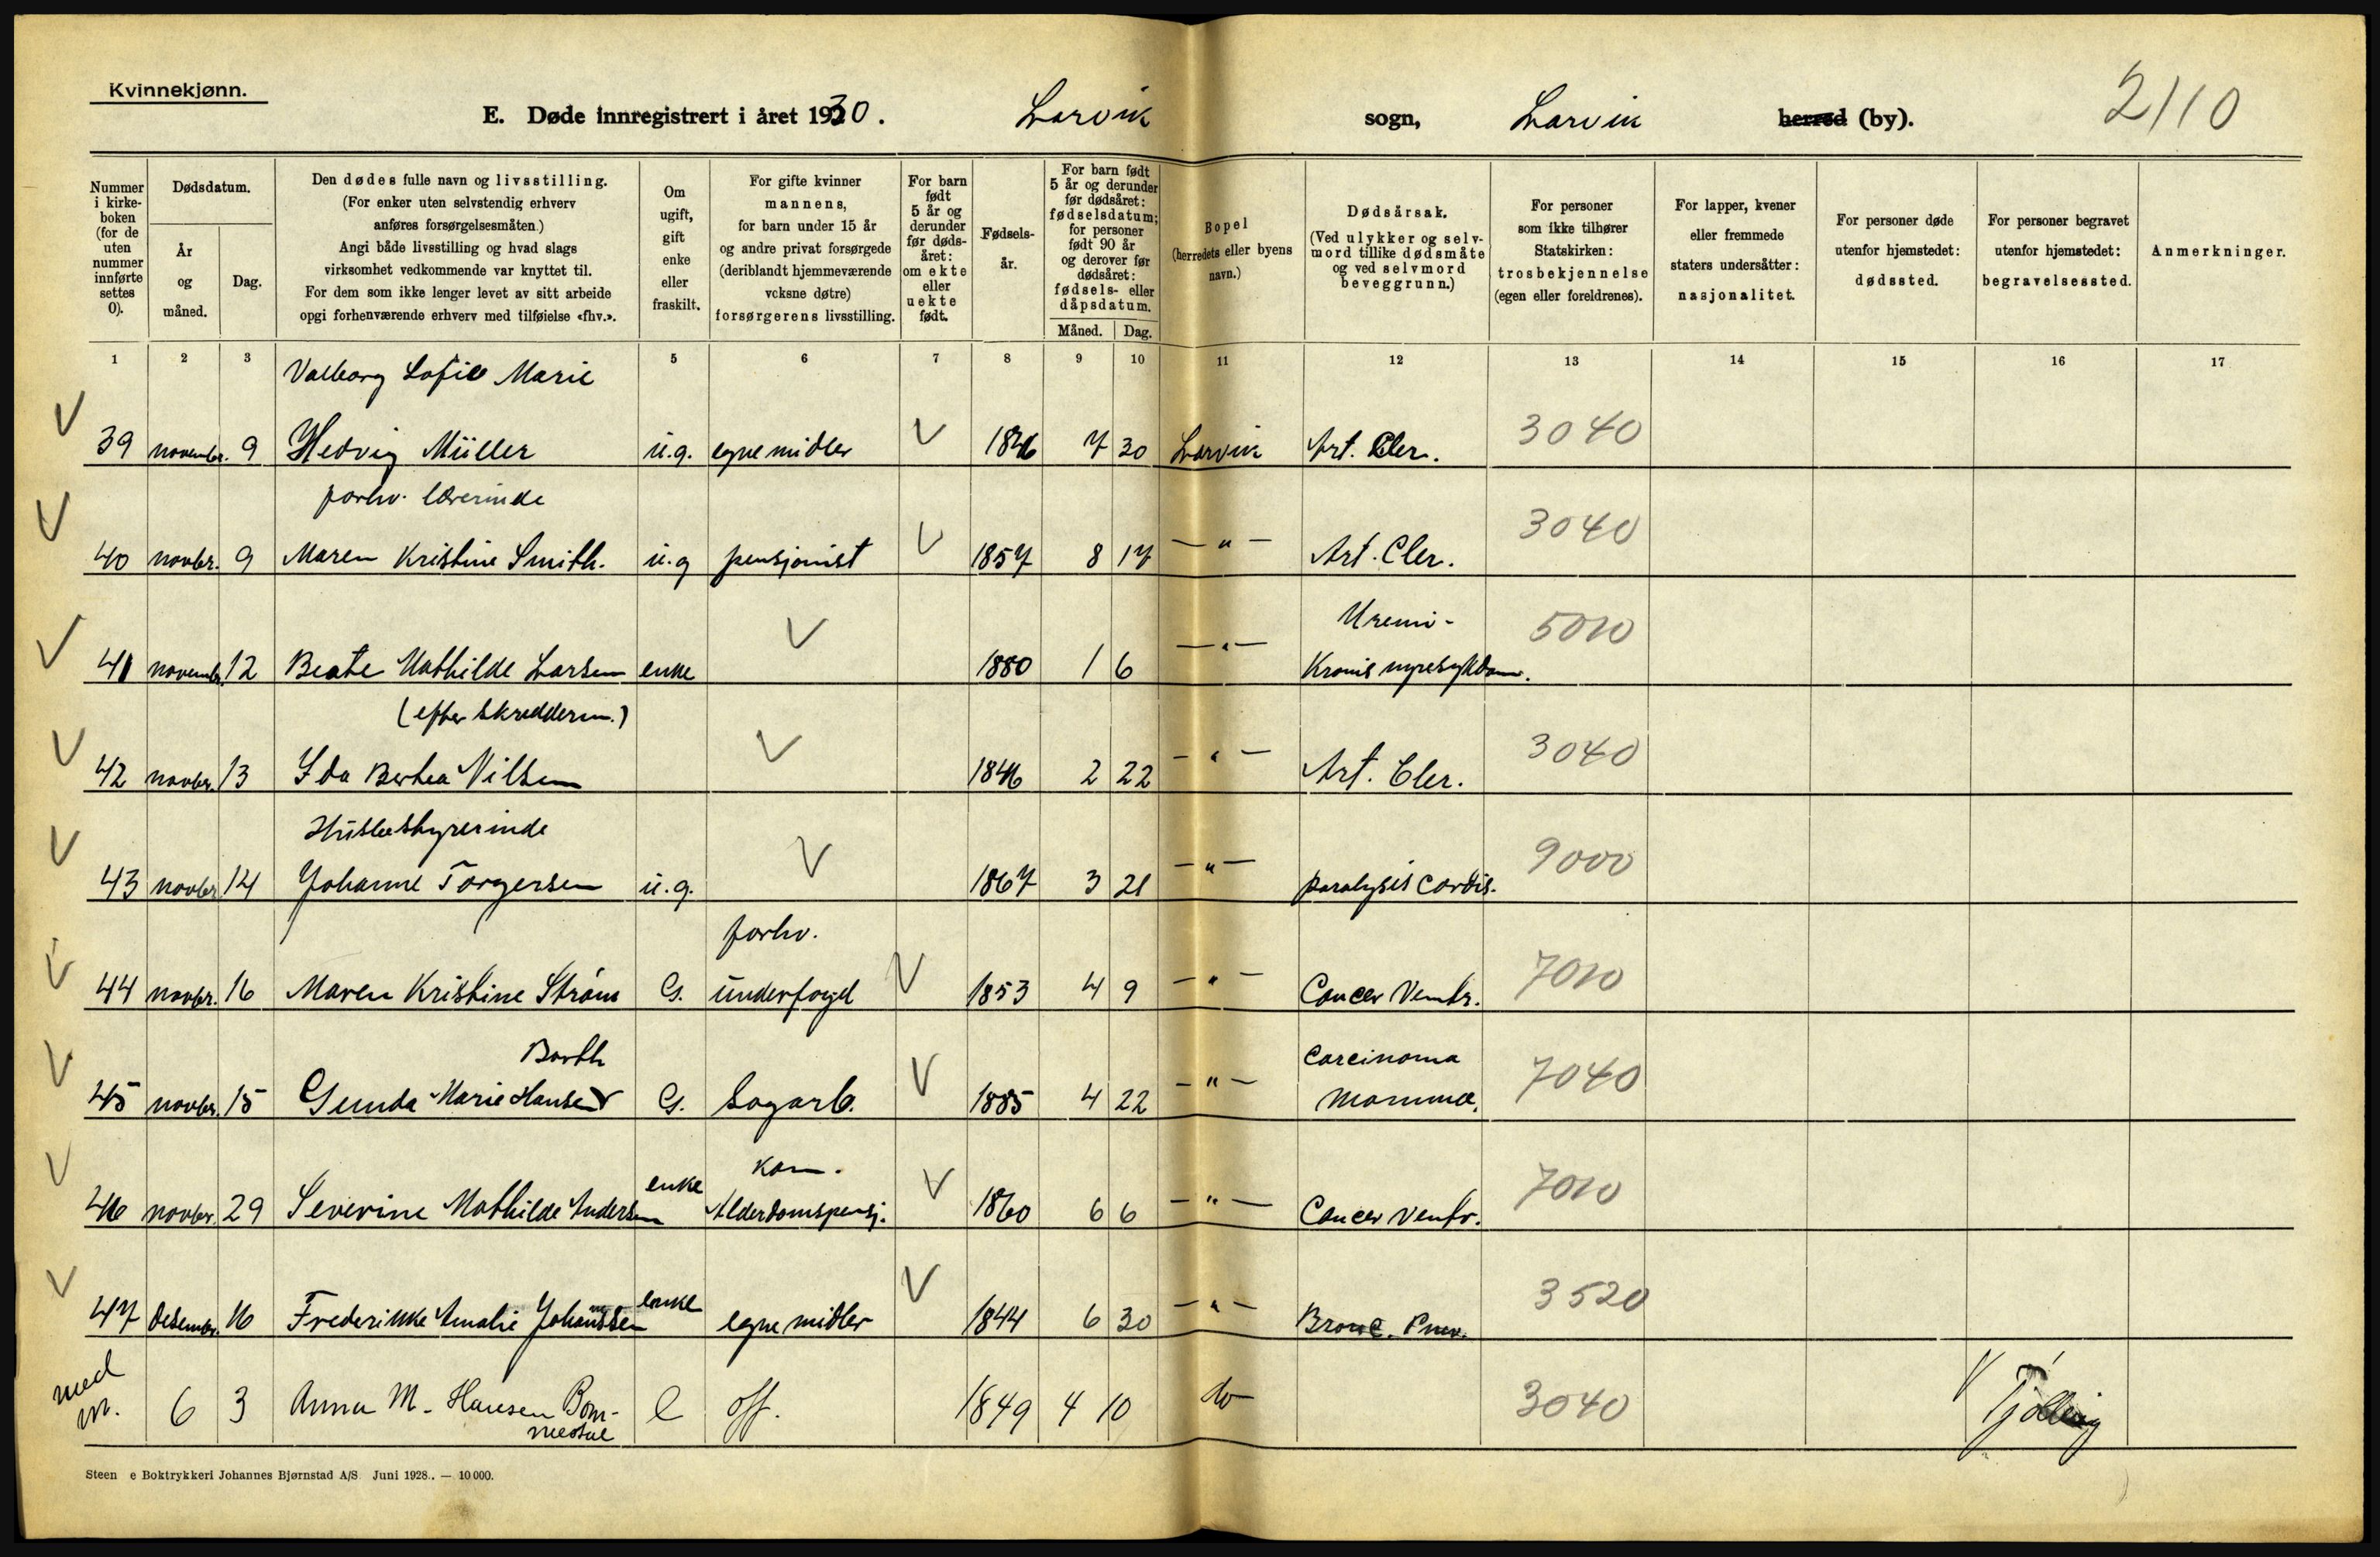 Kvinnekjønn.
E. Døde innregistrert i året 1930. Larvik sogn, Larvik herred (by). 2110
Nummer i kirke-boken (for de uten nummer innførte settes 0).
Dødsdatum.
År og måned.
Dag.
Den dødes fulle navn og livsstilling.
(For enker uten selvstendig erhverv
anføres forsørgelsesmåten.)
Angi både livsstilling og hvad slags
virksomhet vedkommende var knyttet til.
For dem som ikke lenger levet av sitt arbeide
opgi forhenværende erhverv med tilføielse «fhv.».
Om ugift, gift enke eller fraskilt.
For gifte kvinner
mannens,
for barn under 15 år
og andre privat forsørgede
(deriblandt hjemmeværende
voksne døtre)
forsørgerens livsstilling.
For barn født 5 år og derunder før døds-året: om ekte eller uekte født.
Fødsels-år.
For barn født 5 år og derunder før dødsåret: fødselsdatum; for personer født 90 år og derover før dødsåret: fødsels- eller dåpsdatum.
Måned.
Dag.
Bopel
(herredets eller byens
navn.)
Dødsårsak.
(Ved ulykker og selv-
mord tillike dødsmåte
og ved selvmord
beveggrunn.)
For personer
som ikke tilhører
Statskirken:
trosbekjennelse
(egen eller foreldrenes).
For lapper, kvener
eller fremmede
staters undersåtter:
nasjonalitet.
For personer døde
utenfor hjemstedet:
dødssted.
For personer begravet
utenfor hjemstedet:
begravelsessted.
Anmerkninger.
1 2 3 5 6 7 8 9 10 11 12 13 14 15 16 17
Valborg Sofie Marie
39 novembr. 9 Hedvig Müller u.g. egne midler 1846 7 30 Larvik Art. Cler. 3040
forhv. lærerinde
40 novbr. 9 Maren Kristine Smith. u.g pensjonist 1857 8 17 — " — Art. Cler. 3040
Uremi-
41 novembr. 12 Beate Mathilde Larsen enke 1880 1 6 — " — Kronis nyresykdom. 5010
(efter skredderm.)
42 novbr. 13 Ida Berhea Nilsen 1846 2 22 — " — Art. Cler. 3040
Husbestyrerinde
43 novbr 14 Johanne Torgersen u.g. 1867 3 21 — " — paralysis cordis. 9000
forhv.
44 novbr. 16 Maren Kristine Strøm G. underfoged 1853 4 9 — " — Cancer Ventr. 7010
Barth Carcinoma
45 novbr. 15 Gunda Marie Hansen G. Sagarb. 1885 4 22 — " — Mammæ. 7040
enke Kom.
46 novbr. 29 Severine Mathilde Andersen Alderdomspensj. 1860 6 6 — " — Cancer Ventr. 7010
47 desembr. 16 Frederikke Amalie Johanssen enke egne midler 1844 6 30 — " — Bronc. Pneu. 3520
med m. 6 3 Anna M. Hansen Bommestul e off. 1849 4 10 do 3040 Tjølling
Steen e Boktrykkeri Johannes Bjørnstad A/S Juni 1928.. — 10000.